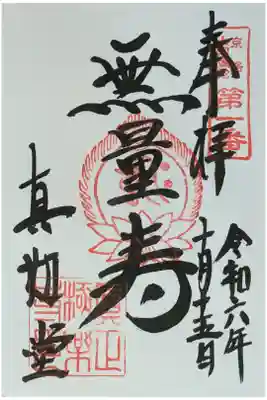 奉拝
第一番
令和六年
十月十五日
無量寿
真如堂
真正
極楽